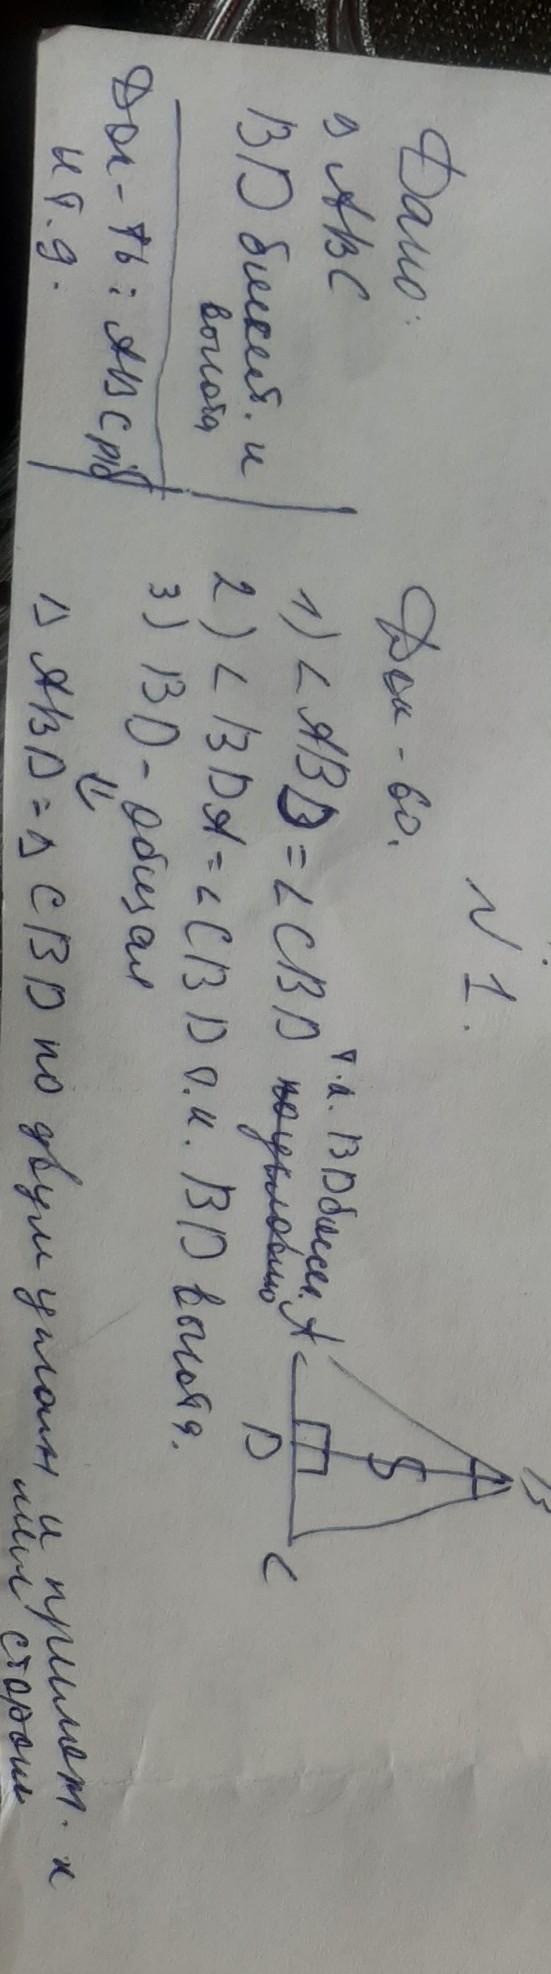 N 1.
Дано:
△ ABC
BD биссект. и
высота
Док-ть: ABC р/б
и т.д.
Док-во.
1) ∠ ABD = ∠ CBD т.к. BD биссек.
2) ∠ BDA = ∠ CBD т.к. BD высота.
3) BD - общая
⇓
△ ABD = △ CBD по двум углам и прилеж. к
ним стороне
B
A
D
C